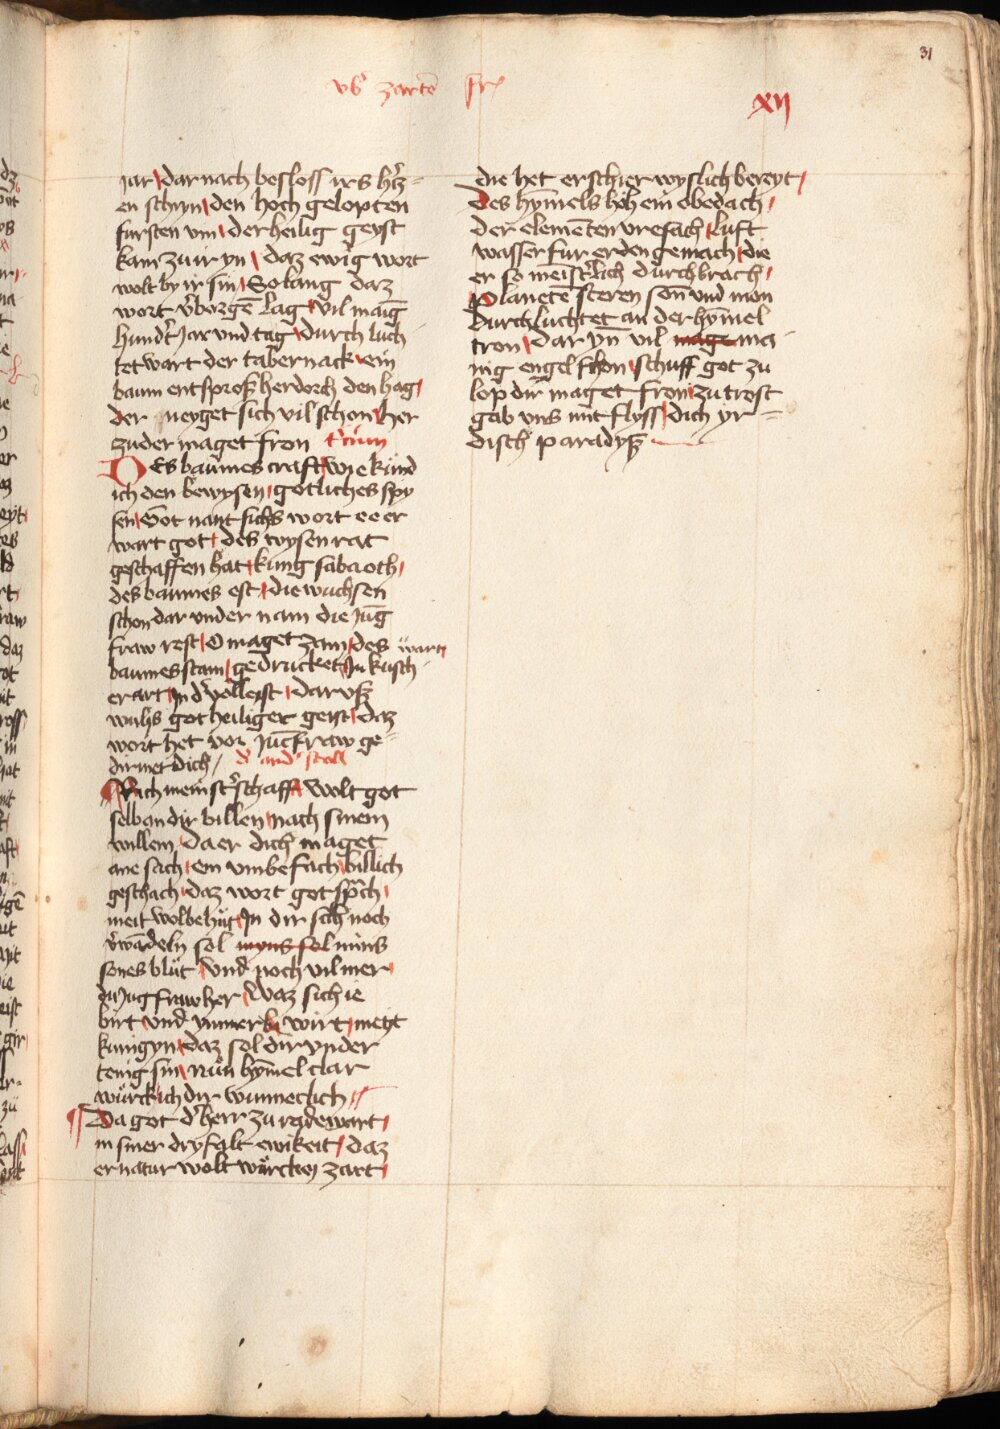 31
vß zarte fr
xij
jar / dar nach besloss irs h'tz=
en schryn / den hoch gelopten
fursten vin / der heilig geyst
kam zu ir yn / daz ewig wort
wolt by ir sin / So lang daz
wort v'borgē lag / vil maīg
hundt' Jar vnd tag / durch luch
tet wart der tabernack / ein
baum entsproß her dorch den hag /
der neyget sich vil schon / her
zu der maget fron t'cium
Des baumes craft / wie kund
ich den bewysen / gotliches spy
sen / Got nant sichs wort ee er
wart got / des wysen rat
geschaffen hat / kung sabaoth /
des baumes est / die wuchsen
schon dar vnder nam die jug
fraw rest / O maget zam / des warn
baumes stam / gedrucket / In kusch
er art / In d' volleist / dar vß
wuhs got heiliger geist / daz
wort het vor jucfraw ge=
dirmet dich / d' and' stoll
Rich meinst'schaft / wolt got
selb an dir billen / nach sinem
willem / da er dich maget
ane sach / ein vmbefach / billich
geschach / daz wort got sprch /
meit wolbehut / In dir sich noch
v'wādeln sol myns sol mins
sones blut / vnd noch vil mer /
du Jugfraw her / Waz sich ie
birt / vnd ymmer wirt / meyt
kunigyn / daz sol dir vnder
tenig sin / nun hymel clar
wurck ich dir wunneclich //
Da got d' herr zu rade wart /
in siner dryfalt ewikeit / daz
er natur wolt wurcken zart /
die het er schier wyslich bereyt /
Des hymels hoh ein obedach /
der elementen vrefach / luft
wasser fur erden gemach / die
er so meist'lich durchbrach /
Planete steren son vnd mon
durchluchtet an der hymel
tron / dar yn vil mage ma
nig engel schon / schuff got zu
lop dir maget fron / zu trost
gab vns mit flyss / dich yr=
disch paradyß